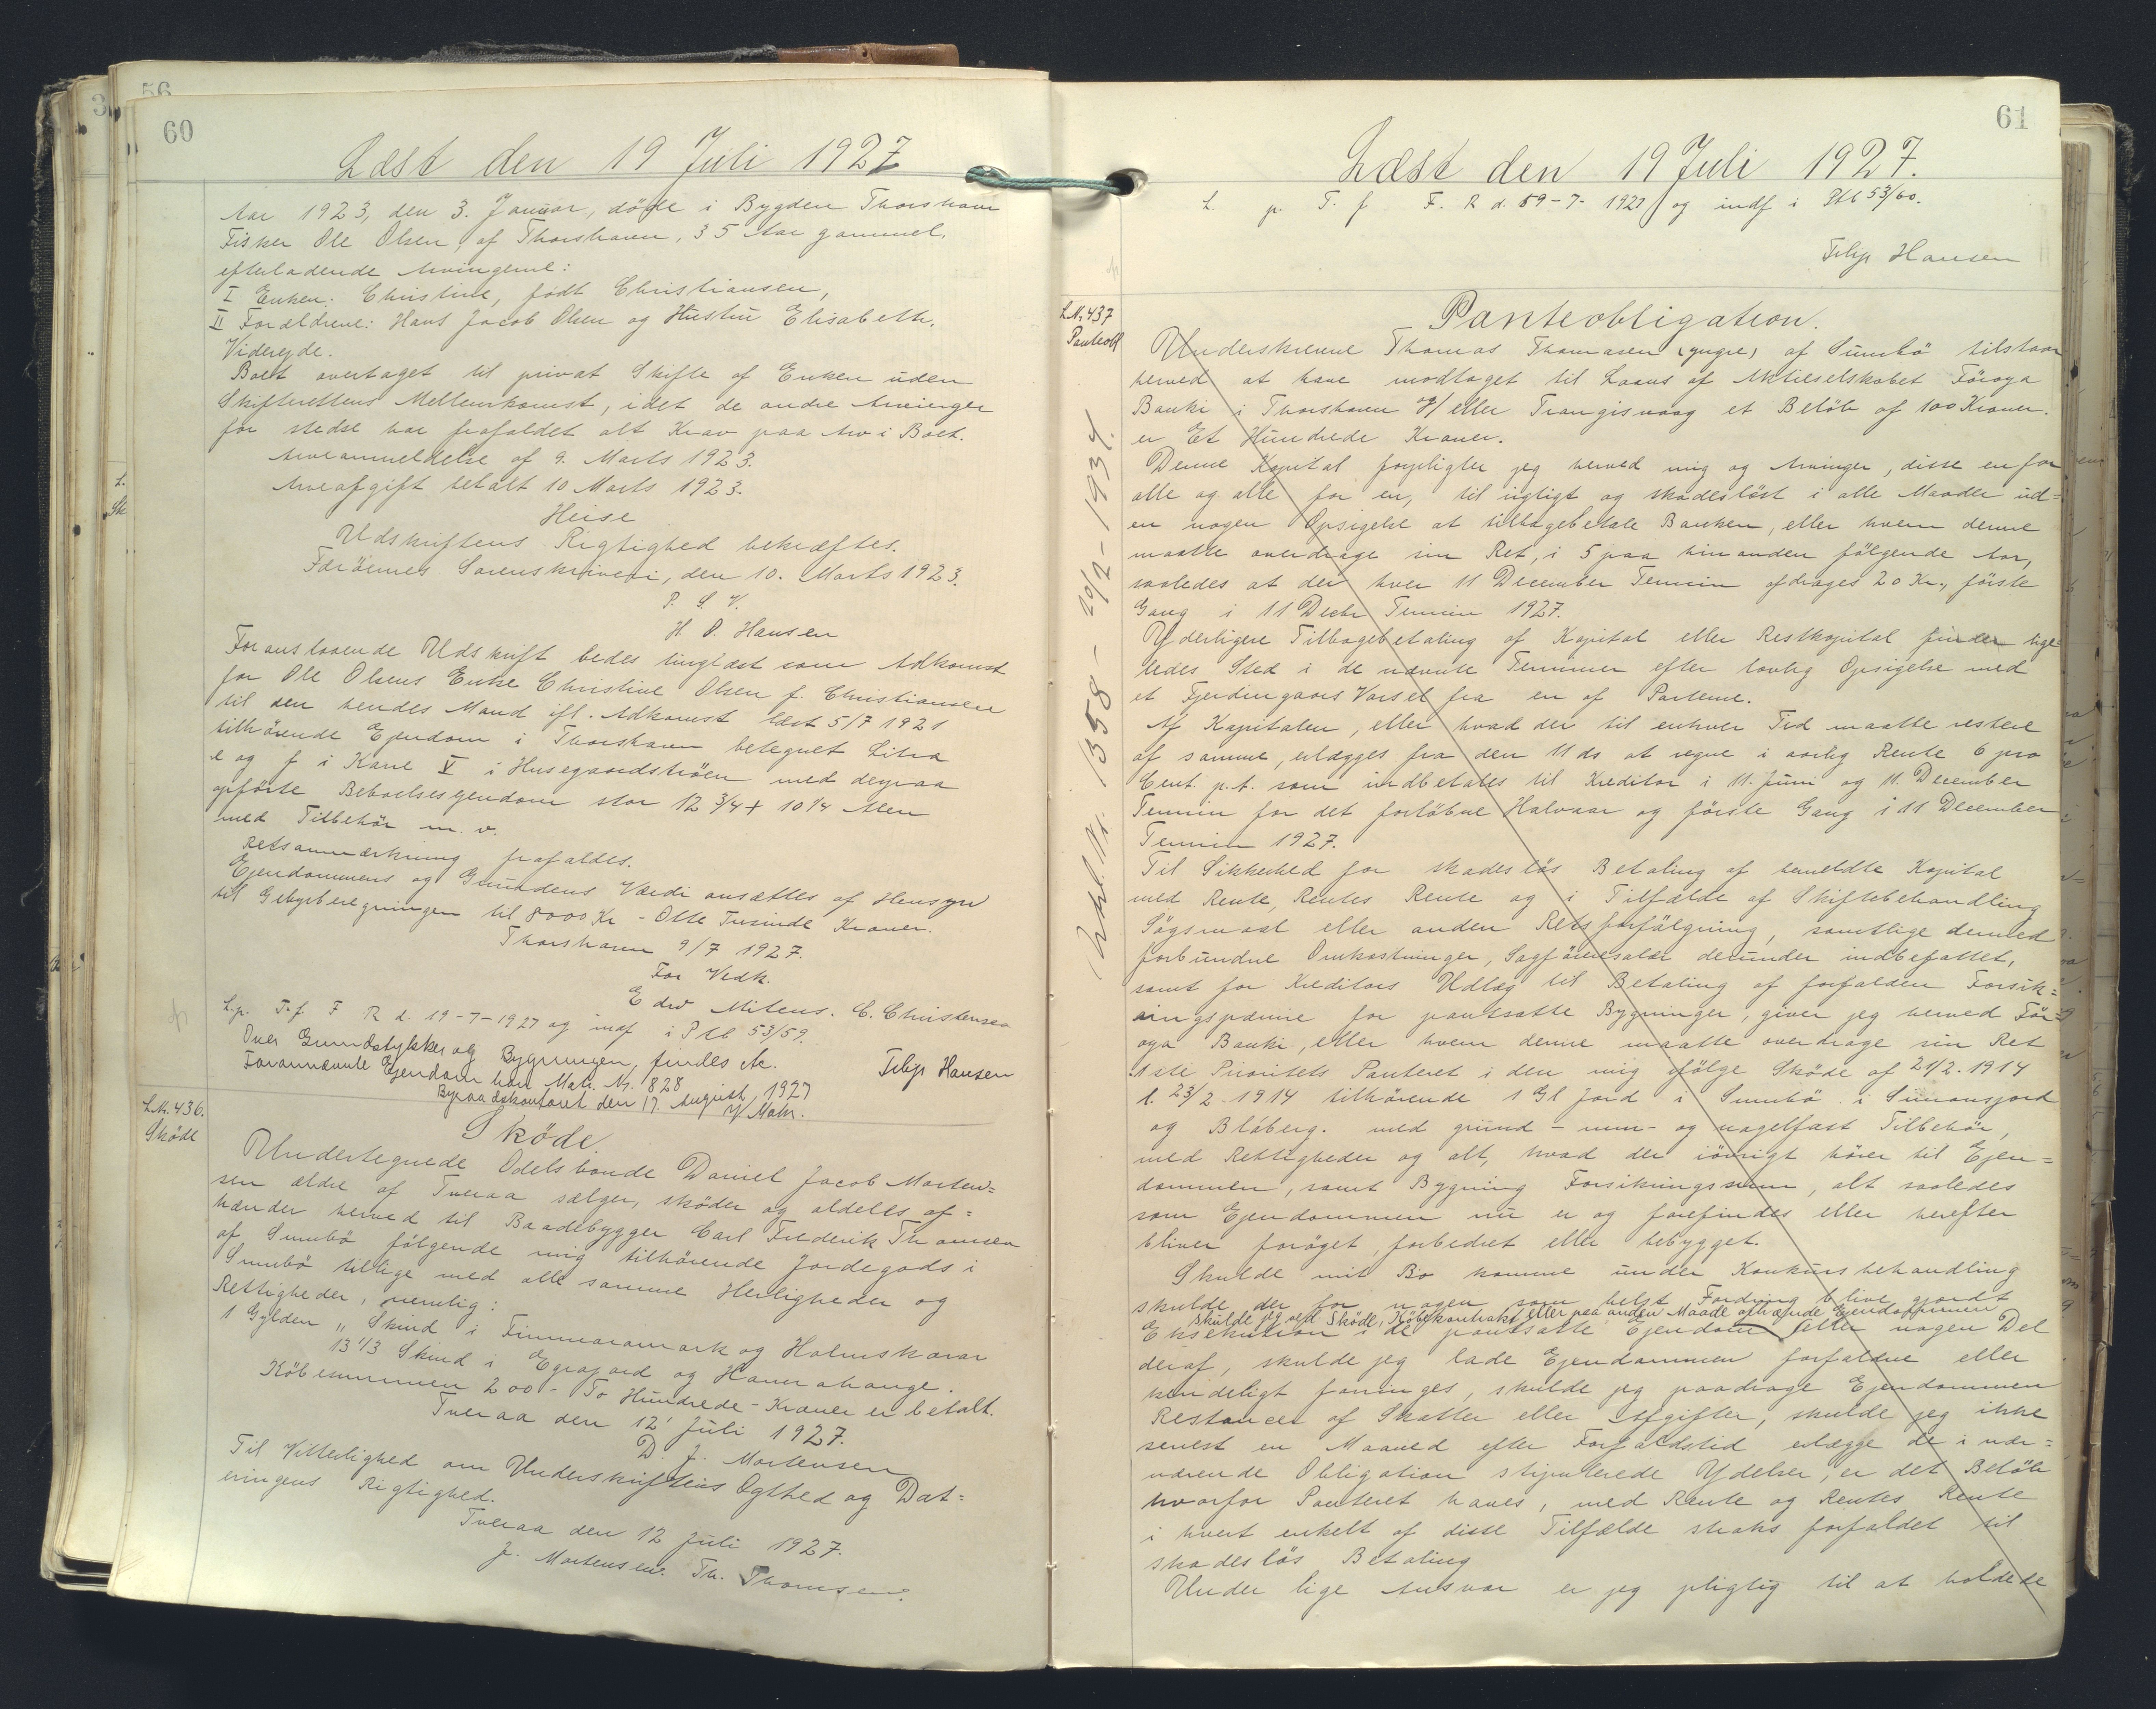 56
60
Læst den 19 Juli 1927
Aar 1923, den 3. Januar, døde i Bygden Thorshavn
Fisker Ole Olsen, af Thorshavn, 35 Aar gammel,
efterladende Arvingerne:
I Enken: Christine, født Christiansen,
II Forældrene: Hans Jacob Olsen og Hustru Elisabeth.
Viderejde.
Boet overtaget til privat Skifte af Enken uden
Skifterettens Mellemkomst, idet de andre Arvinger
for stedse har frafaldet alt Krav paa Arv i Boet.
Arveanmeldelse af 9. Marts 1923.
Arveafgift betalt 10 Marts 1923.
Heise
Udskriftens Rigtighed bekræftes.
Færöernes Sorenskriveri, den 10. Marts 1923.
P. S. V.
H. D. Hansen
Foranstaaende Udskrift bedes tinglæst som Adkomst
for Ole Olsens Enke Christine Olsen f. Christiansen
til den hendes Mand ifl. Adkomst læst 5/7 1921
tilhörende Ejendom i Thorshavn betegnet Litra
e og f i Karre V i Husegaardströen med derpaa
opförte Beboelsesejendom stor 12 3/4 + 10 1/4 Alen
med Tilbehör m. v.
Retsanmærkning frafaldes.
Ejendommens og Grundens Værdi ansættes af Hensyn
til Gebyrberegningen til 8000 Kr - Otte Tusinde Kroner.
Thorshavn 9/7 1927.
For Vedk.
Edw Mitens. C. Christensen
L.p. T.f. F R d. 19-7-1927 og indf i Ptb 53/59.
Over Grundstykker og Bygningen, findes etc.
Filip Hansen
Forannævnte Ejendom har Matr. Nr. 828
Byraadskontoret den 17. August 1927
L.Nr. 436.
Sköde
Sköde
Undertegnede Odelsbonde Daniel Jacob Morten=
sen ældre af Tveraa sælger, sköder og aldeles af=
hænder herved til Baadebygger Carl Frederik Thomsen
af Sumbö følgende mig tilhörende Jordegods i
Sumbö tillige med alle samme Herligheder og
Rettigheder, nemlig:
1 Gylden „ Skind i Timmaramark og Holmskarar
13 1/3 Skind i Egrajord og Hamrahange.
Köbesummen 200 - To Hundrede - Kroner er betalt.
Tveraa den 12' Juli 1927.
D. J. Mortensen
Til Vitterlighed om Underskriftens Ægthed og Dat=
eringens Rigtighed.
Tveraa den 12 Juli 1927.
J. Mortensen. Th. Thomsen.
61
Læst den 19 Juli 1927.
L. p. T. f F. R d. 19-7-1927 og indf i Ptb 53/60.
Filip Hansen
L.Nr. 437
Panteobl
Panteobligation.
Underskrevne Thomas Thomasen (yngre) af Sumbö tilstaar
herved at have modtaget til Laans af Aktieselskabet Föroya
Banki i Thorshavn &/eller Trangisvaag et Belöb af 100 Kroner.
er Et Hundrede Kroner.
Denne Kapital forpligter jeg herved mig og Arvinger, disse en for
alle og alle for en, til rigtigt og skadeslöst i alle Maader ud=
en nogen Opsigelse at tilbagebetale Banken, eller hvem denne
maatte overdrage sin Ret, i 5 paa hinanden fölgende Aar,
saaledes at der hver 11 December Termin afdrages 20 Kr., förste
Gang i 11 Decbr Termin 1927.
Yderligere Tilbagebetaling af Kapital eller Restkapital finder lige=
ledes Sted i de nævnte Terminer efter lovlig Opsigelse med
et Fjerdingaars Varsel fra en af Parterne.
Af Kapitalen, eller hvad der til enhver Tid maatte restere
af samme, erlægges fra den 11 ds at regne i aarlig Rente 6 pro
Cent. p.t. som indbetales til Kreditor i 11. Juni og 11. December
Termin for det forlöbne Halvaar og förste Gang i 11 December
Termin 1927.
Til Sikkerhed for skadeslös Betaling af bemeldte Kapital
med Rente, Rentes Rente og i Tilfælde af Skiftebehandling
Sögsmaal eller anden Retsforfölgning, samtlige dermed
forbundne Omkostninger, Sagförersalær derunder indbefattet,
samt for Kreditors Udlæg til Betaling af forfalden Forsik=
ringspræmie for pantsatte Bygninger, giver jeg herved För=
oya Banki, eller hvem denne maatte overdrage sin Ret
1ste Prioritets Panteret i den mig ifölge Sköde af 21/2. 1914
l. 23/2 1914 tilhörende 1 Gl Jord i Sumbö i Simonsjord
og Bláberg. med grund- mur- og nagelfast Tilbehör,
med Rettigheder og alt, hvad der iövrigt hörer til Ejen=
dommen, samt Bygning Forsikringssum, alt saaledes
som Ejendommen nu er og forefindes eller herefter
bliver foröget, forbedret eller bebygget.
Skulde mit Bo komme under Konkursbehandling
skulde der for nogen som helst Fordring blive gjordt
skulde jeg ved Sköde, Köbekontrakt eller paa anden Maade afhænde Ejendommen
Eksekution i de pantsatte Ejendom eller nogen Del
deraf, skulde jeg lade Ejendommen forfaldne eller
kendeligt forringes, skulde jeg paadrage Ejendommen
Restancer af Skatter eller Afgifter, skulde jeg ikke
senest en Maaned efter Forfaldstid erlægge de i nær=
værende Obligation stipulerede Ydelser, er det Belöb
hvorfor Panteret haves, med Rente og Rentes Rente
i hvert enkelt af disse Tilfælde straks forfaldet til
skadeslös Betaling
Under lige Ansvar er jeg pligtig til at holde de